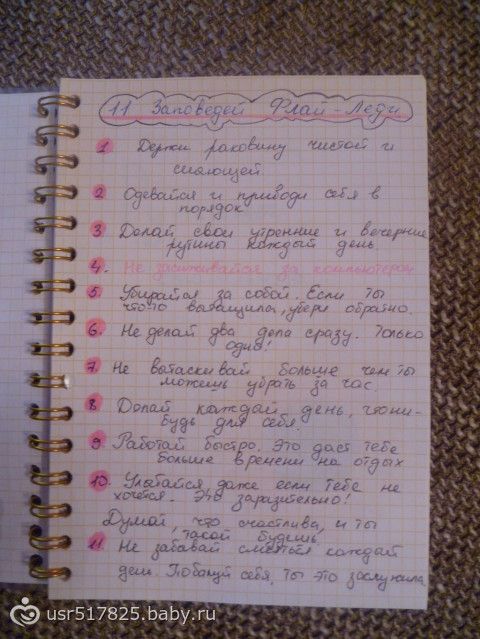 11 Заповедей Флай-Леди
1 Держи раковину чистой и
сияющей
2 Одевайся и приводи себя в
порядок
3 Делай свои утренние и вечерние
рутины каждый день
4. Не засиживайся за компьютером
5. Убирайся за собой. Если ты
что то вытащила, убери обратно.
6. Не делай два дела сразу. Только
одно!
7. Не вытаскивай больше чем ты
можешь убрать за час.
8 Делай каждый день, что ни-
будь для себя.
9 Работай быстро. Это даст тебе
больше времени на отдых
10. Улыбайся даже если тебе не
хочется. Это заразительно!
Думай, что счастлива, и ты
такой будешь.
11. Не забывай смеяться каждый
день. Побалуй себя, ты это заслужила
usr517825.baby.ru